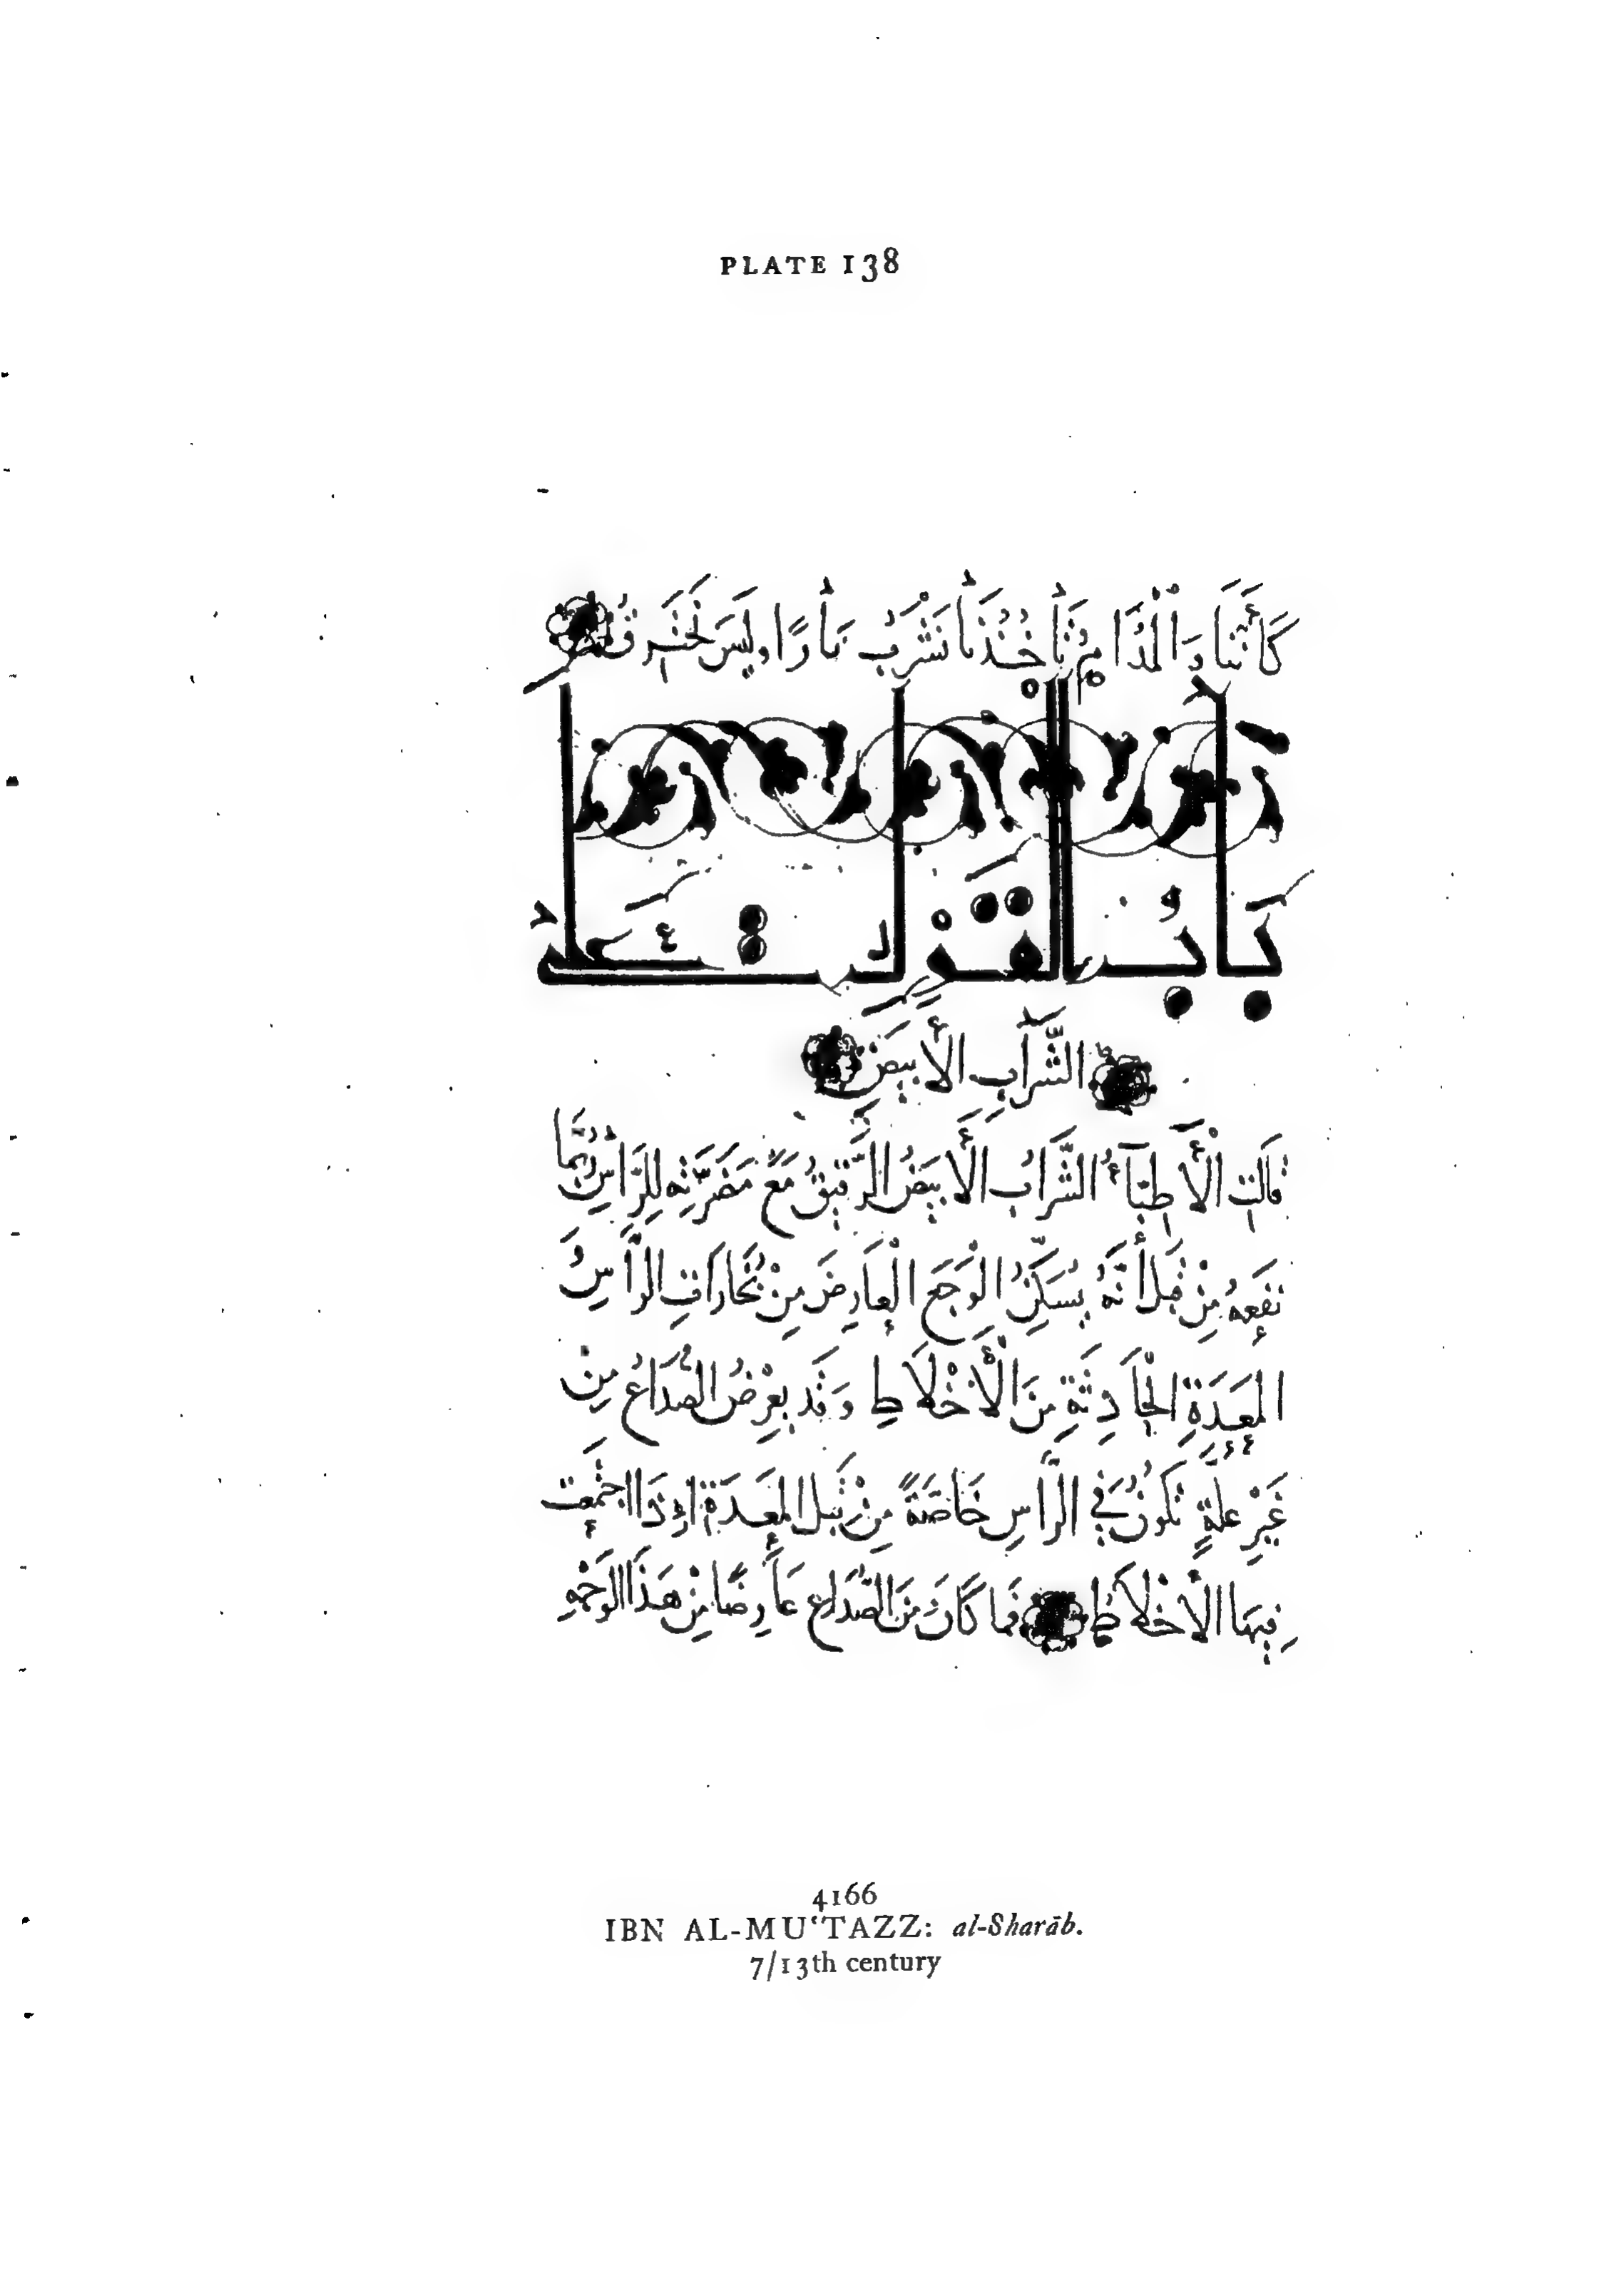 PLATE 138
كَأَنَّنَا وَالْمُدَامُ تَأْخُذُنَا نَشْرَبُ نَارًا وَلَيْسَ نَحْتَرِقُ
بَابُ الْقَوْلِ عَلَى
الشَّرَابِ الْأَبْيَضِ
قَالَتِ الْأَطِبَّآءُ الشَّرَابُ الْأَبْيَضُ الرَّقِيقُ مَعَ مَضَرَّتِهِ لِلرَّأْسِ رُبَّمَا
نَفَعَهُ مِنْ قِبَلِ أَنَّهُ يُسَكِّنُ الْوَجَعَ الْعَارِضَ مِنْ بُخَارَاتِ الرَّأْسِ وَ
الْمَعِدَةِ الْحَادِثَةِ مِنَ الْأَخْلَاطِ وَقَدْ يَعْرِضُ الصُّدَاعُ مِنْ
غَيْرِ عِلَّةٍ تَكُونُ فِي الرَّأْسِ خَاصَّةً مِنْ قِبَلِ الْمَعِدَةِ إِذَا اجْتَمَعَتْ
فِيهَا الْأَخْلَاطُ فَمَا كَانَ مِنَ الصُّدَاعِ عَارِضًا مِنْ هَذَا الْوَجْهِ
4166
IBN AL-MUʿTAZZ: al-Sharāb.
7/13th century